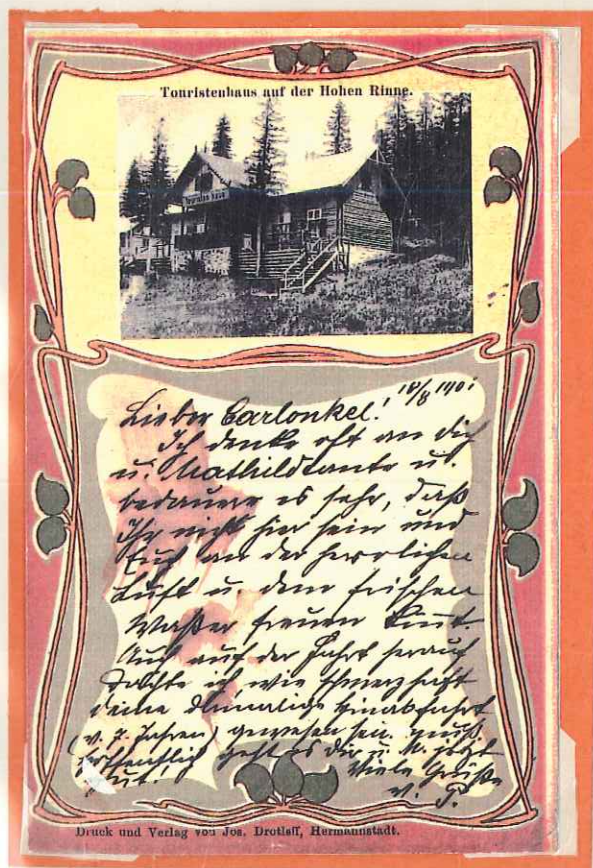 Touristenhaus auf der Hohen Rinne.
Touristenhaus
18/8 1901
Lieber Carlonkel!
Ich denke oft an dich
u. Mathildtante u.
bedauere es sehr, daß
Ihr nicht hier sein und
Euch an der herrlichen
Luft u. dem frischen
Waßer freuen könnt.
Auch auf der Fahrt herauf
dachte ich, wie schmerzhaft
deine damalige Hinabfahrt
(v. 7. Jahren) gewesen sein muß.
Hoffentlich geht es dir u. M. jetzt
gut! Viele Grüße
v. G.
Druck und Verlag von Jos. Drotleff, Hermannstadt.